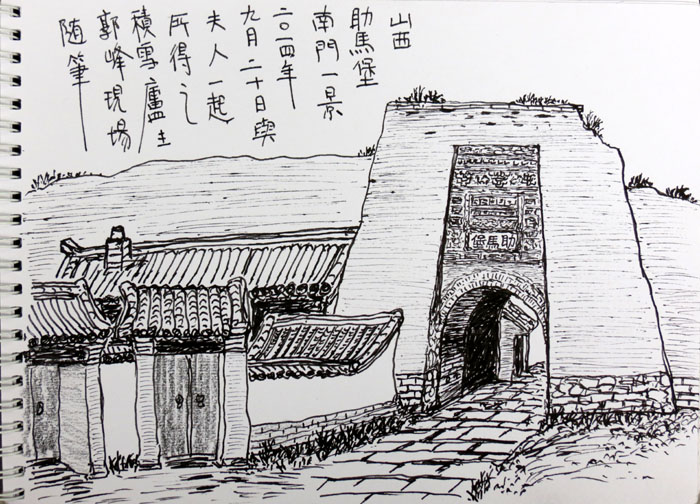 山西
助馬堡
南門一景
二〇一四年
九月二十日與
夫人一起
所得之
積雪廬主
郭峰現場
随筆
助馬堡